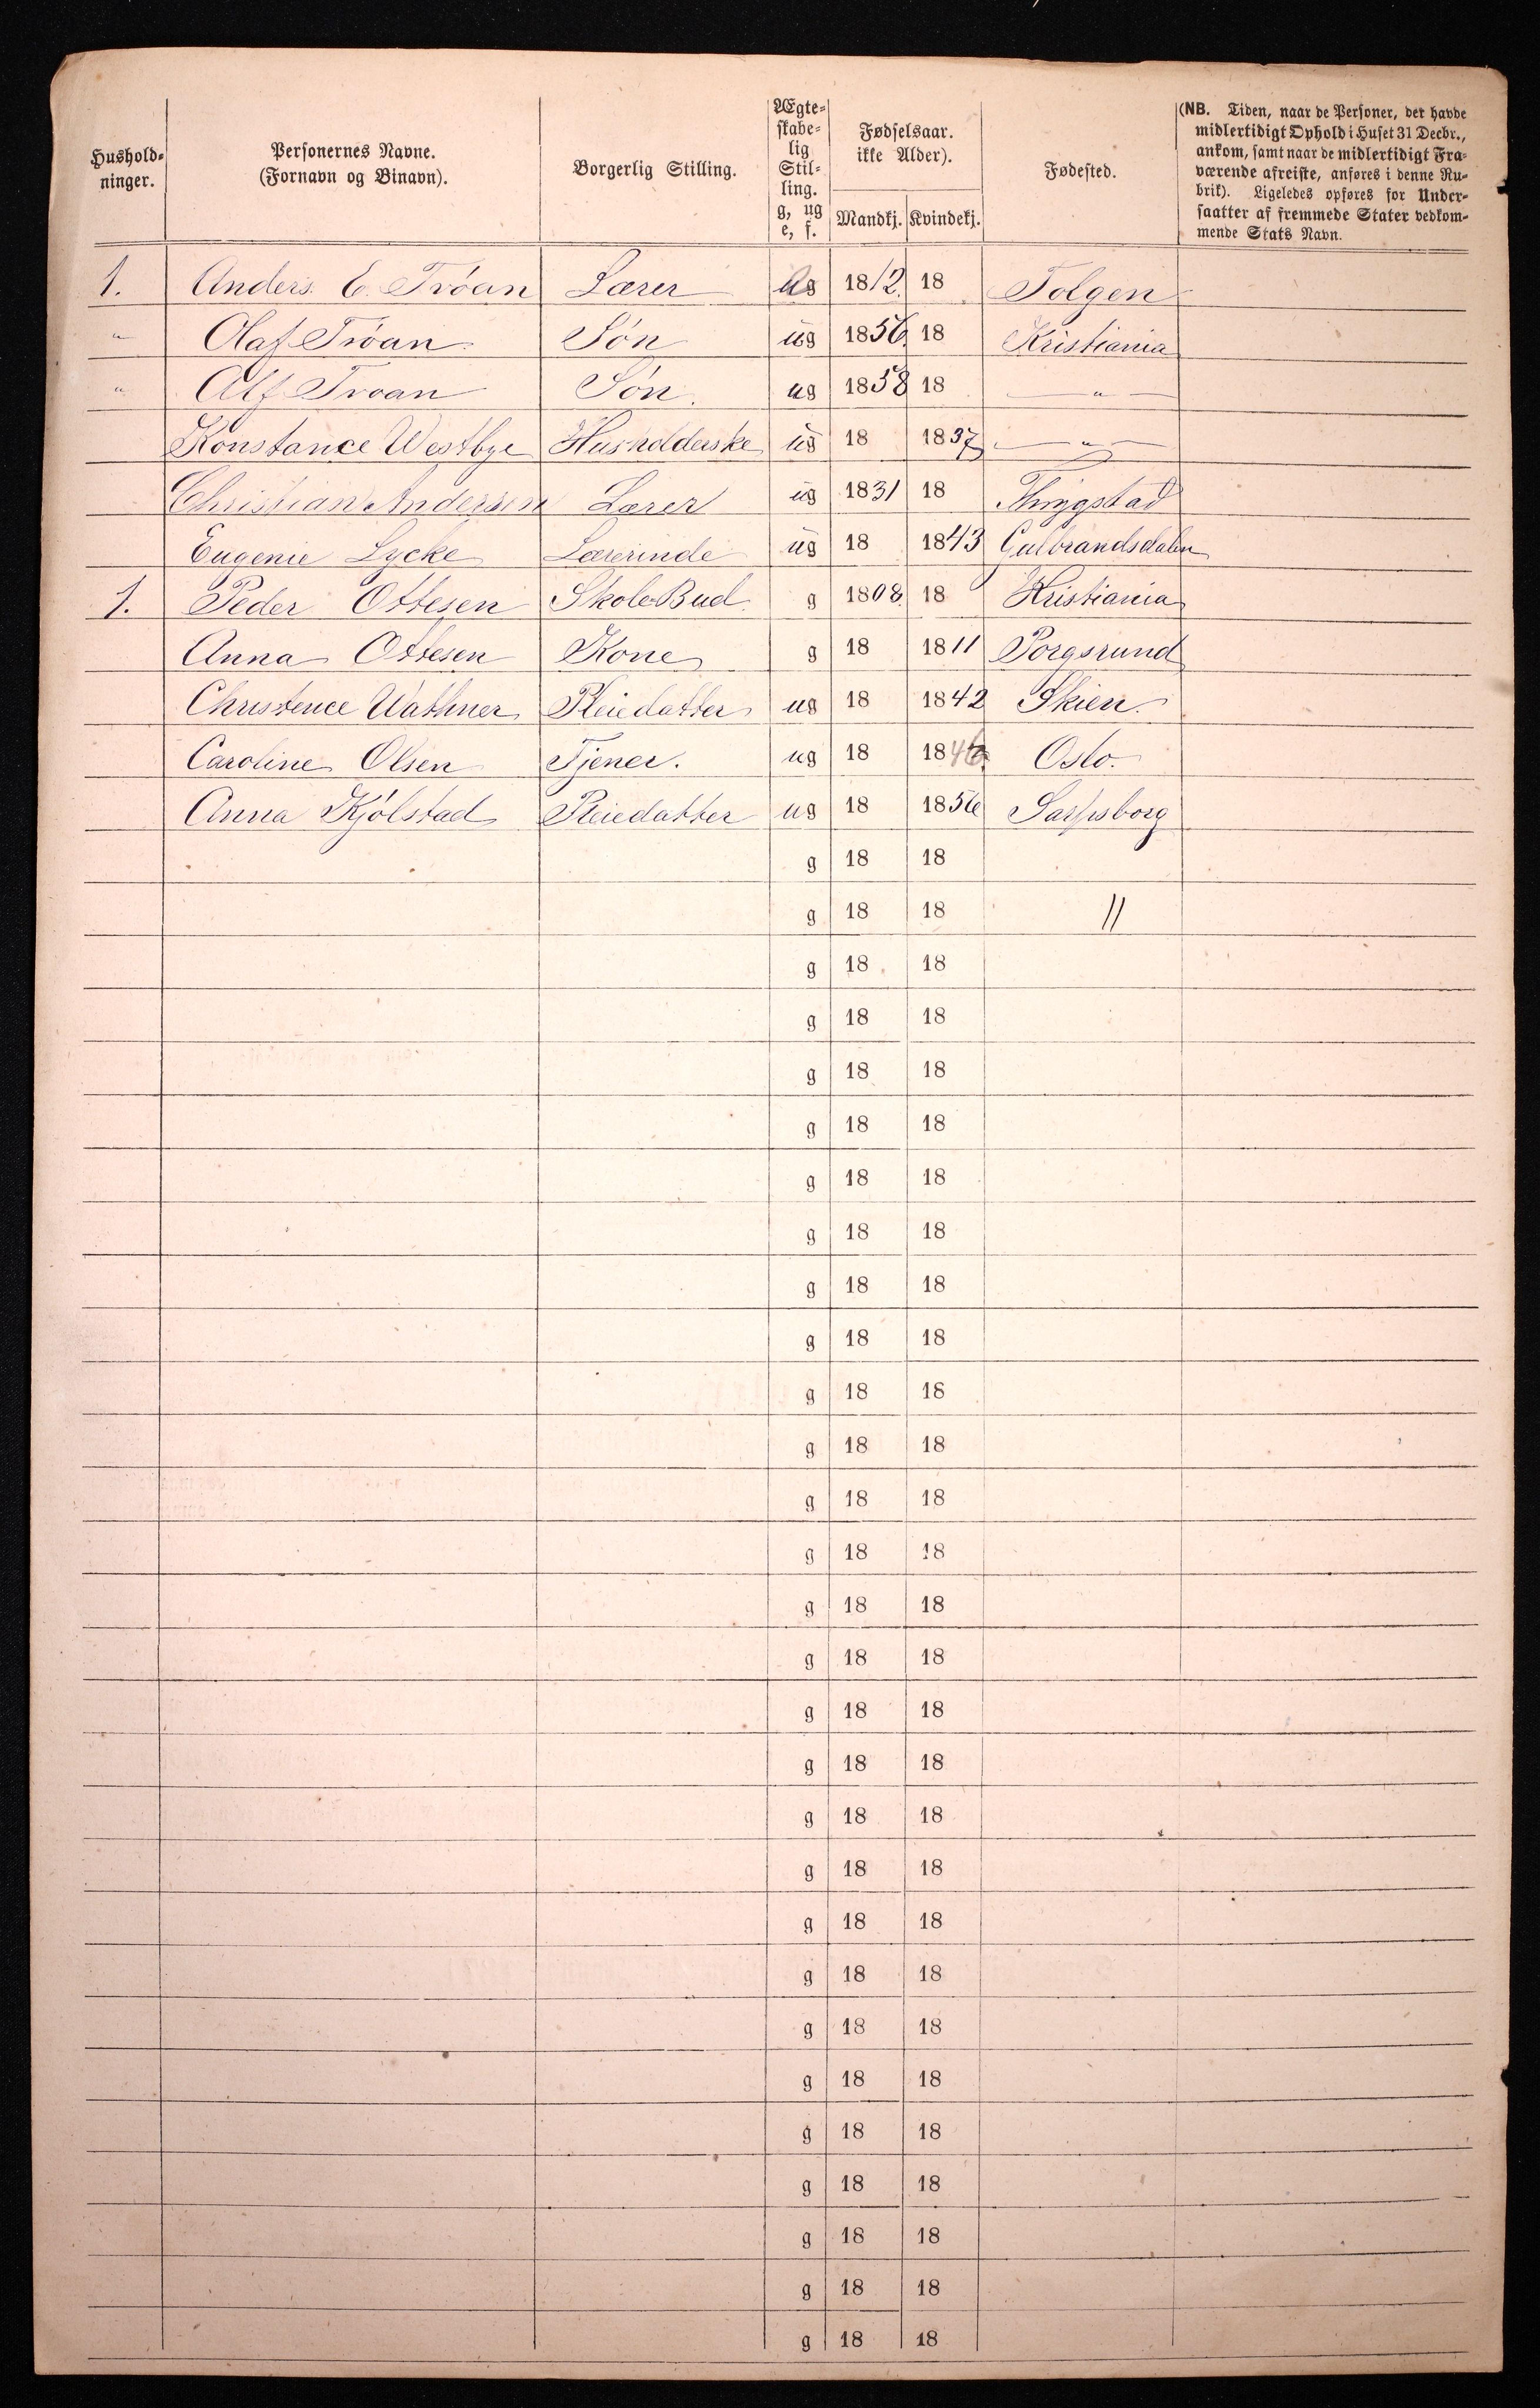 Hushold-
ninger.
Personernes Navne.
(Fornavn og Binavn).
Borgerlig Stilling.
Ægte-
skabe-
lig
Stil-
ling.
g, ug
e, f.
Fødselsaar.
ikke Alder).
Mandkj. Kvindekj.
Fødested.
(NB. Tiden, naar de Personer, der havde
midlertidigt Ophold i Huset 31 Decbr.,
ankom, samt naar de midlertidigt Fra-
værende afreiste, anføres i denne Ru-
brik). Ligeledes opføres for Under-
saatter af fremmede Stater vedkom-
mende Stats Navn.
1. Anders E. Tróan Lærer g 1812. 18 Tolgen
" Olaf Tróan Sön ug 1856. 18 Kristiania
" Alf Troan Sön. ug 1858 18 — " —
Konstance Westbye Husholderske ug 18 1837 — " —
Christian Andersen Lærer ug 1831 18
Eugenie Lycke Lærerinde ug 18 1843 Gulbrandsdalen
1. Peder Ottesen Skole Bud. g 1808. 18 Kristiania
Anna Ottesen Kone g 18 1811 Porgsrund
Christence Wathner Pleiedatter ug 18 1842 Skien.
Caroline Olsen Tjener. ug 18 1846 Oslo.
Anna Kjólstad Pleiedatter ug 18 1856 Sarpsborg
g 18 18
g 18 18 11
g 18 18
g 18 18
g 18 18
g 18 18
g 18 18
g 18 18
g 18 18
g 18 18
g 18 18
g 18 18
g 18 18
g 18 18
g 18 18
g 18 18
g 18 18
g 18 18
g 18 18
g 18 18
g 18 18
g 18 18
g 18 18
g 18 18
g 18 18
g 18 18
g 18 18
g 18 18
g 18 18